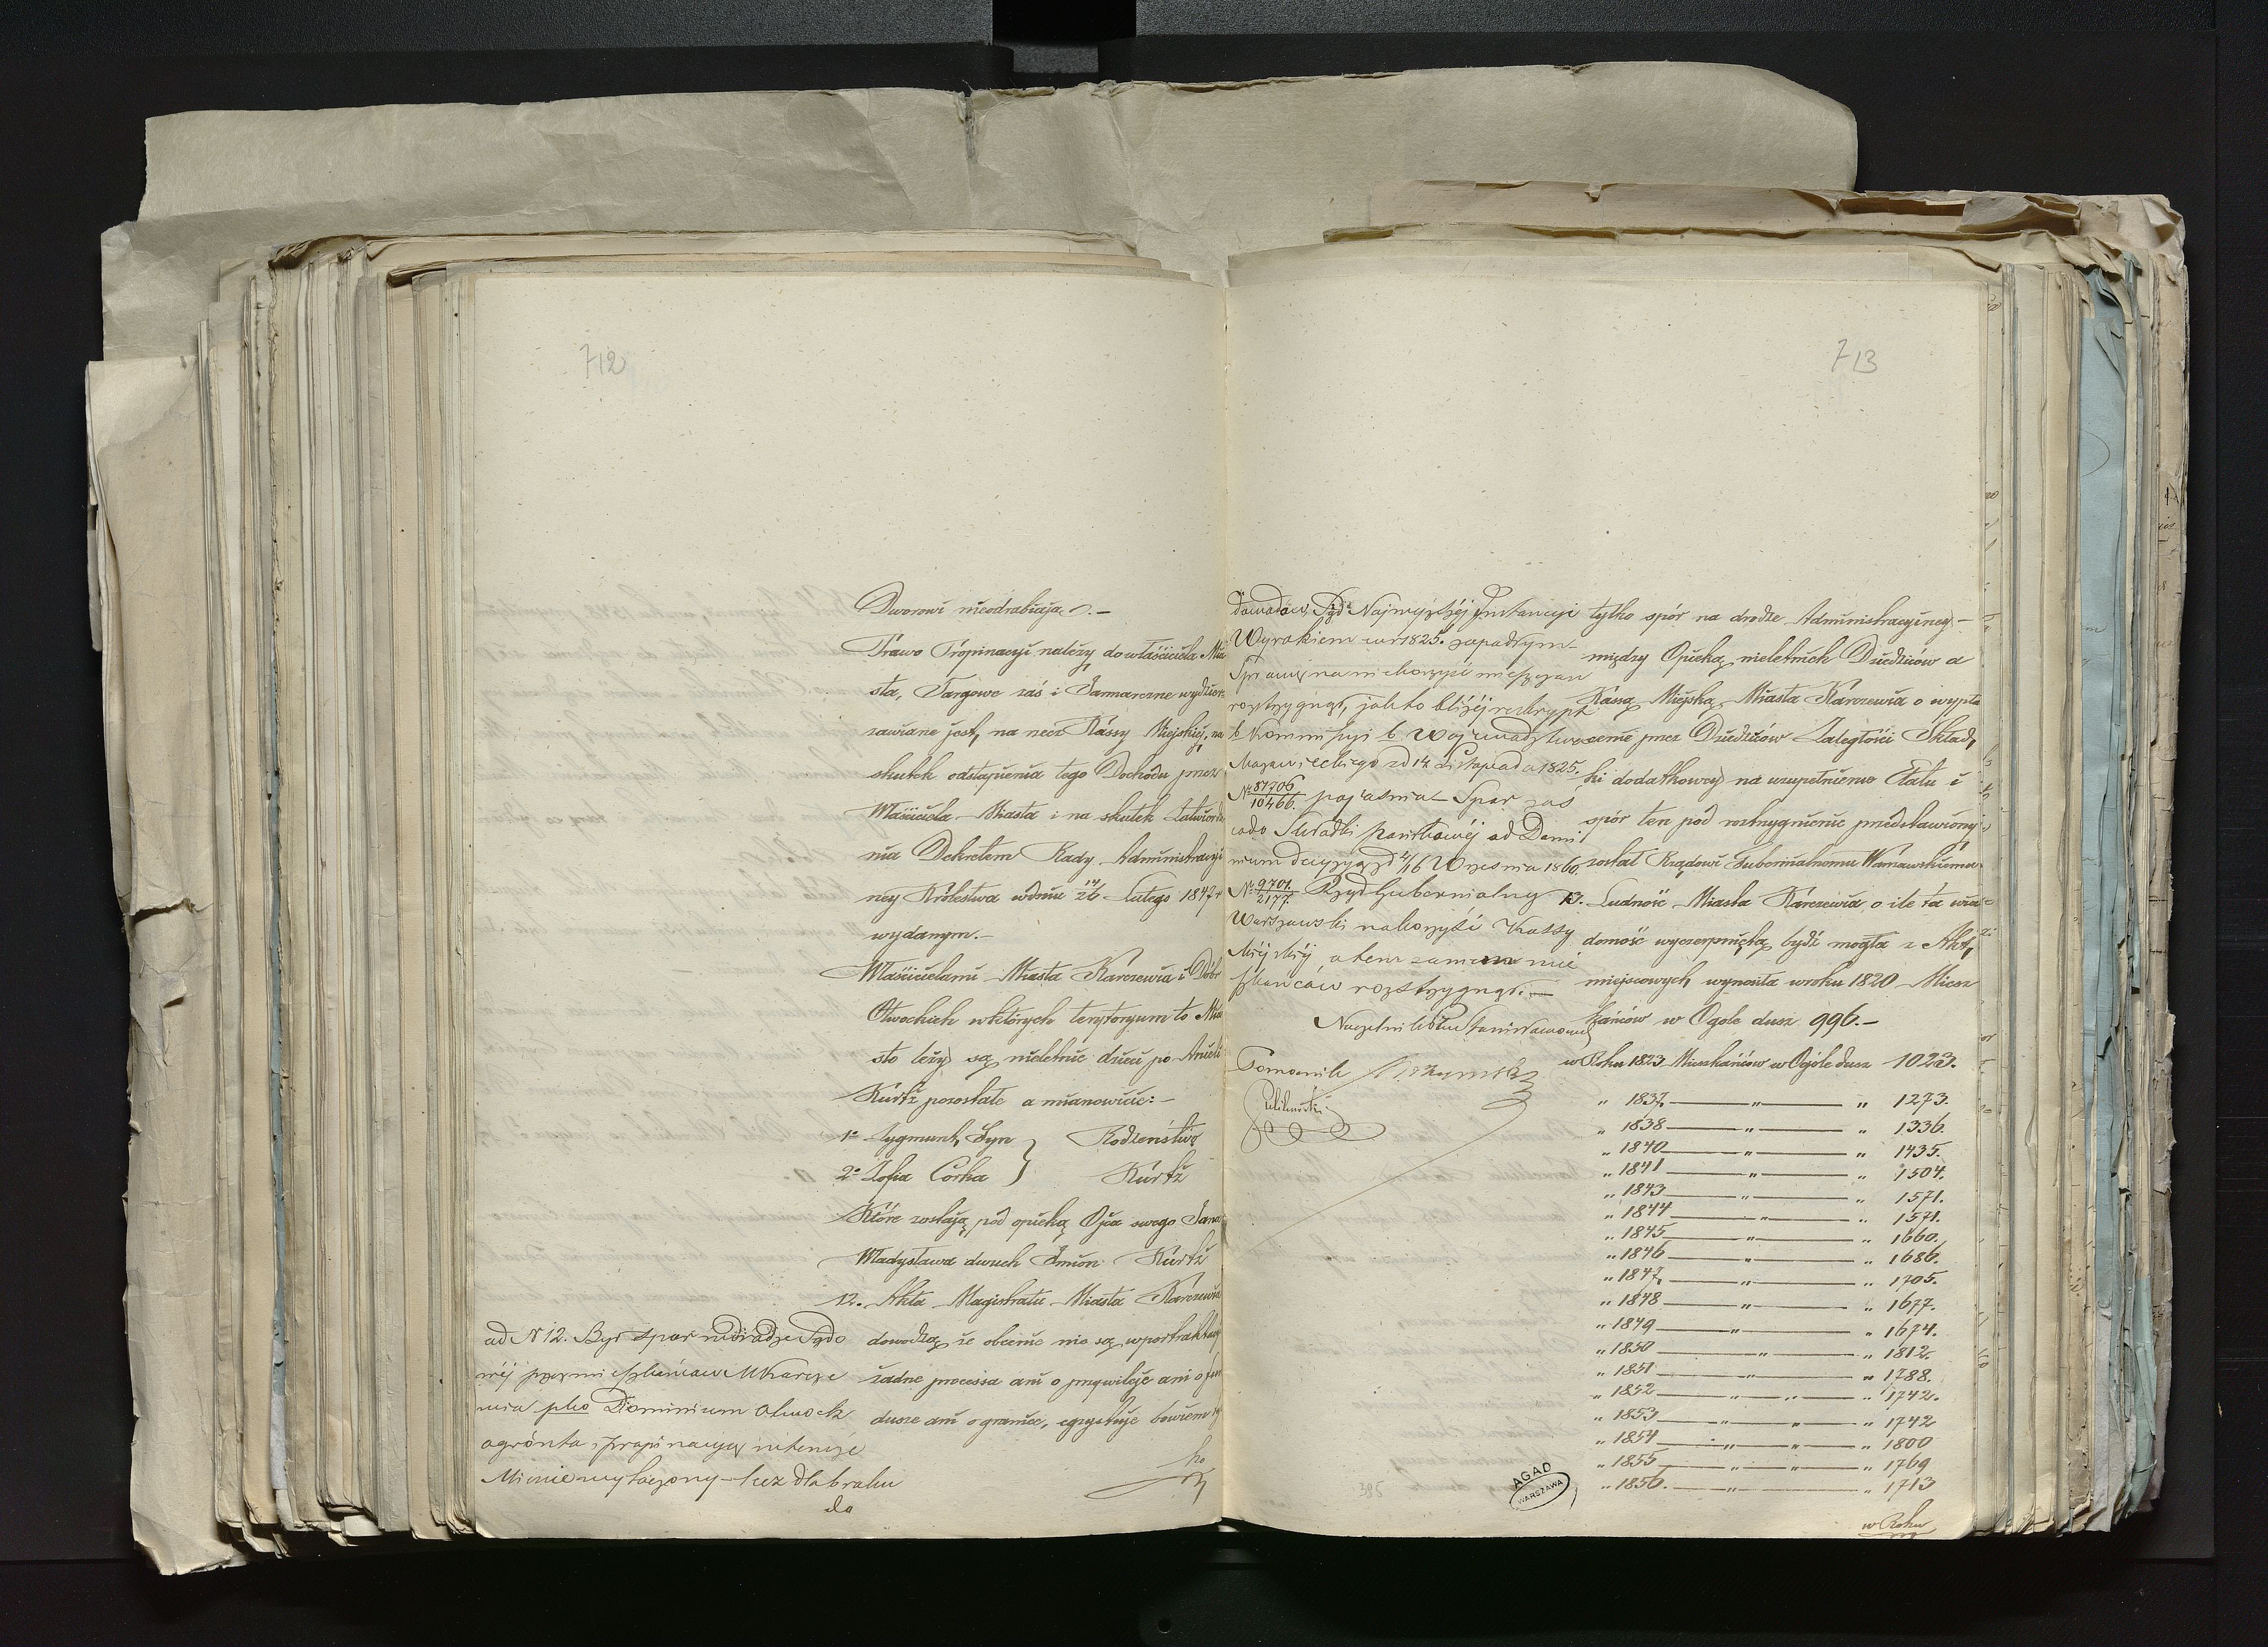 712
Dworowi nieodrabiają.-
Prawo Propinacyi należy do właściciela Mia
sta, Targowe zaś i Jarmarczne wydzier
żawiane jest, na rzecz Kassy Miejskiej, na
skutek odstąpienia tego Dochodu przez
Właściciela Miasta i na skutek Zatwierdze
nia Dekretem Rady Administracyi
ney Królestwa w dniu 14/26 Lutego 1847 r
wydanym.-
Właścicielami Miasta Karczewia i Dóbr
Otwockich w których terytoryum to Mia
sto leży są nieletnie dzieci po Anieli
Kurtz pozostałe a mianowicie:-
1° Zygmunt, Syn } Rodzeństwo
2° Zofia Córka } Kurtz
Które zostają pod opieką Ojca swego Jana
Władysława dwuch Imion Kurtz
12. Akta Magistratu Miasta Karczewia
dowodzą że obecnie nie są w portraktacyi
żadne processa ani o przywileje ani o fun
dusze ani o granice, egzystuje bowiem ty
ko
ad N 12. Był spor na drodze Sądo
wéj przez mieszkańców M Karcze
wia plko Dominium Otwock
o grónta i propinacyą w terminie
Mi niewytoczony - lecz dla braku
do
713
dowodów, Sąd Najwyższéj Instancyi
Wyrokiem w r 1825. zapadłym
Sprawę na niekorzyść mieszczan
rozstrzygnął, jak to bliżéj reskrypt
b Kommissyi b Województwa
Mazowieckiego z d 14 Listopada 1825.
N° 87706/10466. pojaśnia - Spor zaś
co do Składki Kontkowéj od Domi
nium decyzyą z d 4/16 Września 1860.
N° 9701./2177. Rząd Gubernialny
Warszawski na korzyść Kassy
Miejskiéj, a tem samem mie
szkańców rozstrzygnął.-
Naczelnik Ptu Stanisławowsk
Pomocnik
tylko spór na drodze Administracyiney -
między Opieką nieletnich Dziedziców a
Kassą Miejską Miasta Karczewia o wypła
cenie przez Dziedziców Zaległości Skład,
ki dodatkowey na uzupełnienie Etatu i
spór ten pod rozstrzygnienie przedstawiony
został Rządowi Gubernialnemu Warszawskiemu
13. Ludność Miasta Karczewia o ile ta wia
domość wyczerpniętą bydź mogła z Akt,
miejscowych, wynosiła w roku 1820 Miesz
kańców w Ogóle dusz 996.-
w Roku 1823 Mieszkańców w Ogóle dusz 1023.
" 1837 — " — " 1273.
" 1838 — " — " 1336.
" 1840 — " — " 1435.
" 1841 — " — " 1504.
" 1843 — " — " 1571.
" 1844 — " — " 1571.
" 1845 — " — " 1660.
" 1846 — " — " 1686.
" 1847 — " — " 1705.
" 1848 — " — " 1677.
" 1849 — " — " 1674.
" 1850 — " — " 1812.
" 1851 — " — " 1788.
" 1852 — " — " — " 1742.
" 1853 — " — " — " 1742
" 1854 — " — " — " 1800
" 1855 — " — " — " 1769
" 1856. — " — " 1713
w Roku
395
AGAD
WARSZAWA